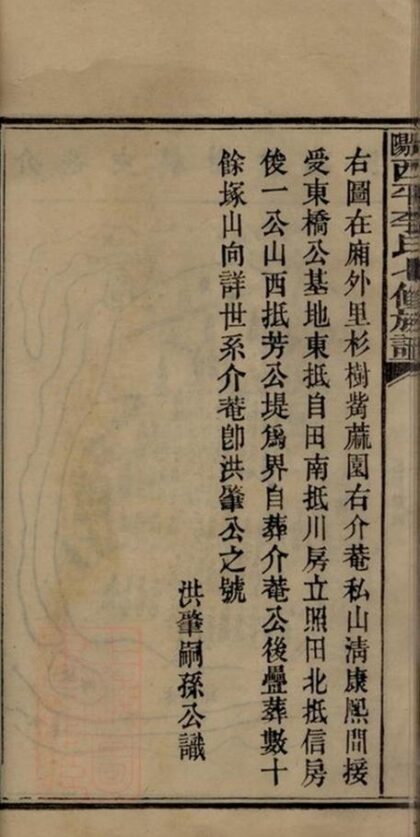 陽西平李氏七修族譜
右圖在廂外里杉樹觜蔴園右介菴私山清康熈間接
受東橋公基地東抵自田南抵川房立照田北抵信房
俊一公山西抵芳公堤爲界自葬介菴公後疊葬數十
餘塚山向詳世系介菴卽洪肇公之號
洪肇嗣孫公識